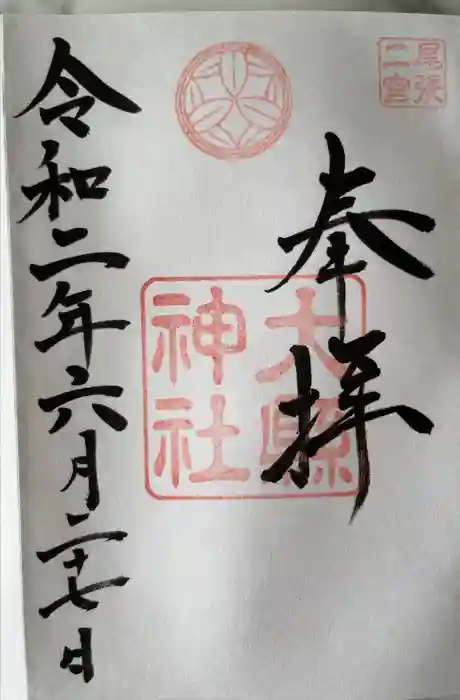 尾張
二宮
奉拝
大縣
神社
令和二年六月二十七日